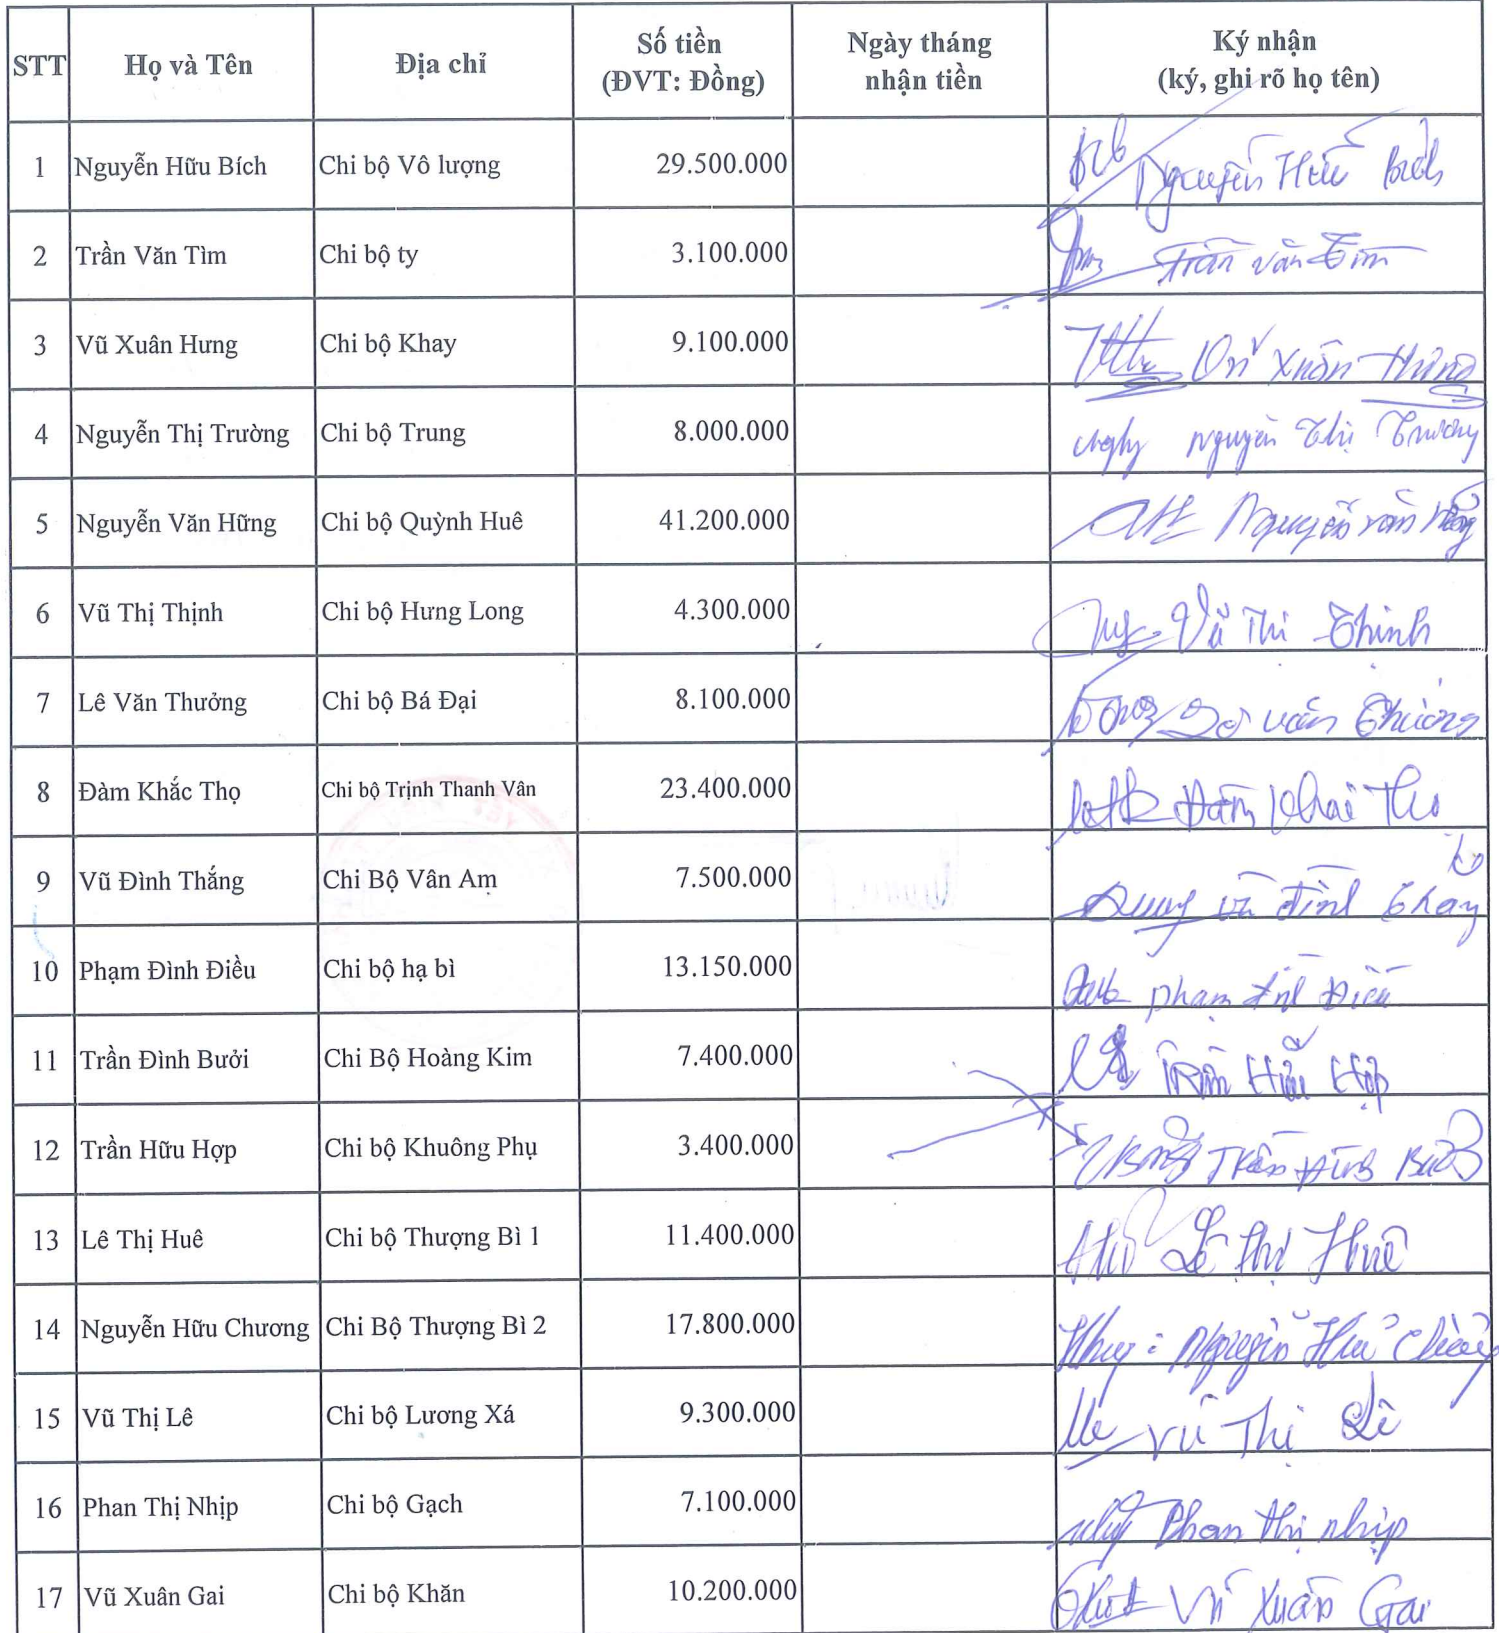 STT Họ và Tên Địa chỉ Số tiền (ĐVT: Đồng) Ngày tháng nhận tiền Ký nhận (ký, ghi rõ họ tên)
1 Nguyễn Hữu Bích Chi bộ Vô lượng 29.500.000 Nguyễn Hữu Bích
2 Trần Văn Tìm Chi bộ ty 3.100.000 Trần văn Tìm
3 Vũ Xuân Hưng Chi bộ Khay 9.100.000 Vũ Xuân Hưng
4 Nguyễn Thị Trường Chi bộ Trung 8.000.000 Nguyễn Thị Trường
5 Nguyễn Văn Hững Chi bộ Quỳnh Huê 41.200.000 Nguyễn văn Hững
6 Vũ Thị Thịnh Chi bộ Hưng Long 4.300.000 Vũ Thị Thịnh
7 Lê Văn Thưởng Chi bộ Bá Đại 8.100.000 Lê văn Thưởng
8 Đàm Khắc Thọ Chi bộ Trịnh Thanh Vân 23.400.000 Đàm Khắc Thọ
9 Vũ Đình Thắng Chi Bộ Vân Am 7.500.000 Vũ Đình Thắng
10 Phạm Đình Điều Chi bộ hạ bì 13.150.000 Phạm Đình Điều
11 Trần Đình Bưởi Chi Bộ Hoàng Kim 7.400.000 Trần Hữu Hợp
12 Trần Hữu Hợp Chi bộ Khuông Phụ 3.400.000 Trần Đình Bưởi
13 Lê Thị Huê Chi bộ Thượng Bì 1 11.400.000 Lê Thị Huê
14 Nguyễn Hữu Chương Chi Bộ Thượng Bì 2 17.800.000 Nguyễn Hữu Chương
15 Vũ Thị Lê Chi bộ Lương Xá 9.300.000 Vũ Thị Lê
16 Phan Thị Nhịp Chi bộ Gạch 7.100.000 Phan thị nhịp
17 Vũ Xuân Gai Chi bộ Khăn 10.200.000 Vũ Xuân Gai